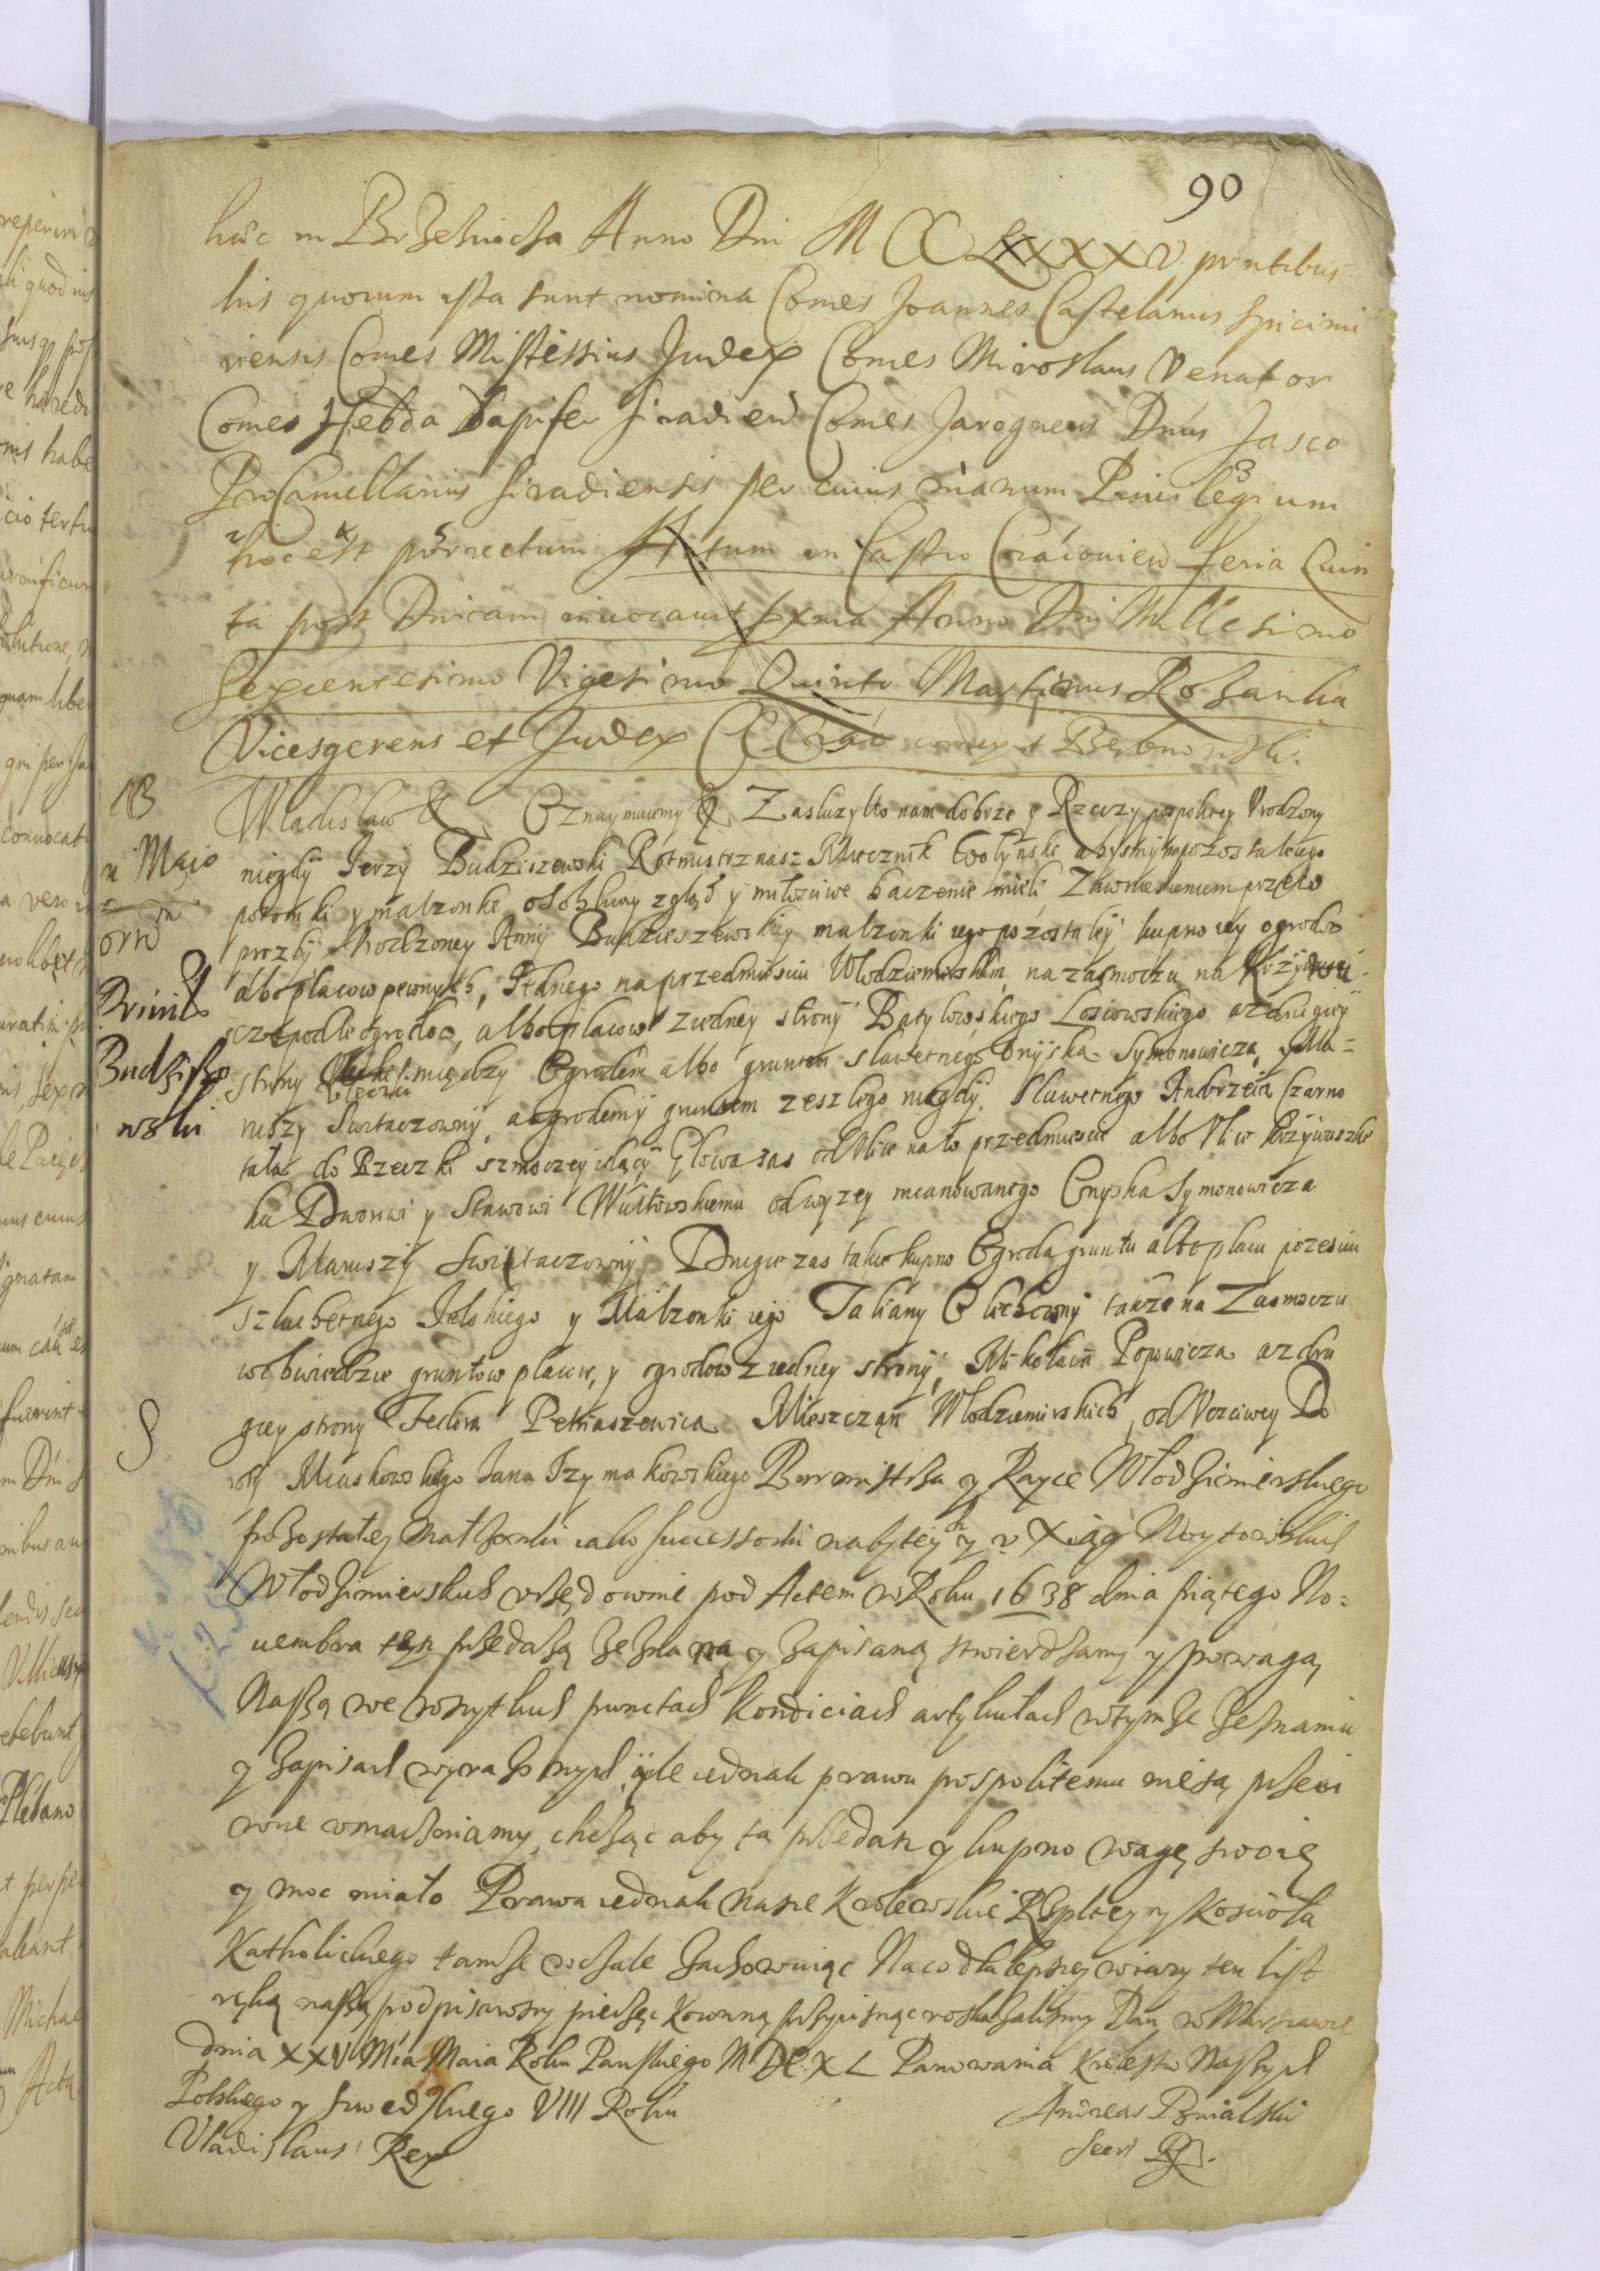 90
hac in Brzeznicza Anno Dni M CC LXXXXV pntibus
his quorum ista sunt nomina Comes Joannes Castelanus Spicimi
riensis Comes Mistessius Judex Comes Miroslaus Venator
Comes Hebda Dapifer Siradien Comes Jarogneus Dnus Jasco
ProCancellarius Siradiensis per cuius manum Priuilegium
hoc est porrectum Actum in Castro Cracouien feria Quin
ta post Dnicam inuocauit pxma Anno Dni Millesimo
Sexcentesimo Vigesimo Quinto Martinus Rozanka
Vicesgerens et Judex CCrac
Wladislaw & Oznaymuiemy & Zasluzył to nam dobrze y Rzeczy pospolitey Vrodzony
niegdy Jerzy Budziszewski Rotmistrz nasz Miecznik Wołyński abysmy na pozostałego
potomki y malzonke osobliwy zgląd y miłosciwe baczenie mieli Za wniesieniem przeto
prozby Vrodzoney Anny Budzieszewskiey malzonki iego pozostałey kupno iey ogrodow
albo placow pewnych, Jednego na przedmiesciu Wlodziemirskim na zasmoczu na
podle ogrodow, albo placow z iedney strony Batylowskiego Losiowskiego a z drugiey
strony między Ogrodem albo gruntem slawetnego Onyska Symonowicza, y Ma=
ruszy Switaczowny, a ogrodem y gruntem zeszlego niegdy Slawetnego Andrzeia Czarno
tała do Rzeczki szmoczey idący Głowa zas od Vlice na to przedmiescie albo Vlice
ku Dworwi y Stawowi Wuitowskiemu od wyzey mianowanego Onyska Symonowicza
y Maruszy Switaczowny Drugie zas takie kupno Ogroda gruntu albo placu
szlachetnego Jelskiego y Małzonki iego Taliany takze na Zasmoczu
w obwiedzie gruntow placow, y ogrodow z iedney strony, Mikołaia Popowicza a z dru
giey strony Fedora Petraszewica Mieszczan Włodziemirskich, od Vczciwey Do
roty Miaskowskiego Jana Burmistrza y Rayce Włodzimierskiego
pozostałey Małzonki iako successorki nabytey y z Xiąg Woytowskich
Włodzimierskich vrzędownie pod Actem w Roku 1638 dnia piątego No=
uembra ten przedazą zeznaną y Zapisaną stwierdzamy y powagą
Naszą we wszytkich punctach kondiciach artykułach w tymze Zeznaniu
y Zapisach wyrazonych ile iednak prawu pospolitemu nie są przeci
wne vmacniamy, chcząc aby ta przedaz y kupno wagę swoię
y moc miało Prawa iednak nasze Krolewskie Rzpltey y Koscioła
Katholickiego tamze wcale Zachowuiąc Na co dla lepszey wiary ten list
ręką naszą podpisawszy pieczęc Koronną przycisnąc roskazalismy Dan w Warszawie
dnia XXV Mca Maia Roku Panskiego M DC XL Panowania Krolestw Naszych
Polskiego y Szwedzkiego VIII Roku
Vladislaus Rex
Andreas
Secr
w
Maio
Budziszo
wski